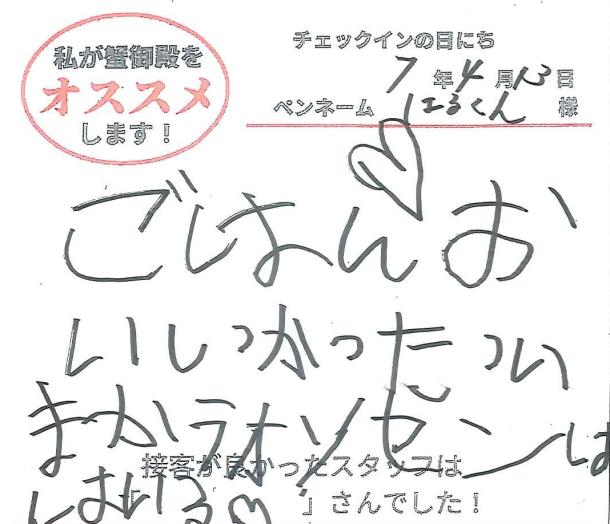 私が蟹御殿を
オススメ
します！
チェックインの日にち
7年4月13日
ペンネーム はるくん 様
ごはんお
いしかったつい
まからオンセンは
接客が良かったスタッフは
「　　　」さんでした！